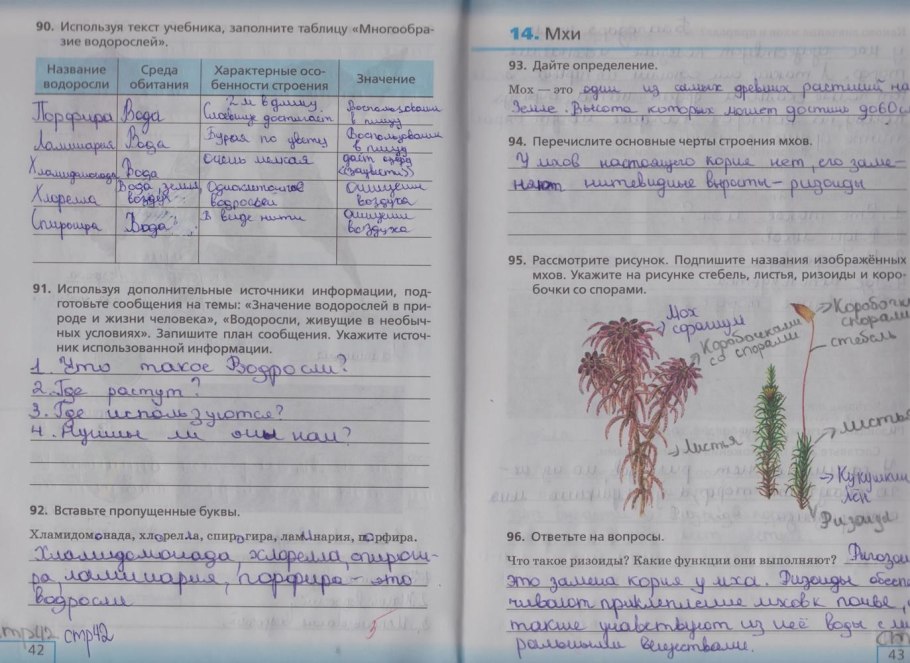 90. Используя текст учебника, заполните таблицу «Многообра-
зие водорослей».
Название водоросли | Среда обитания | Характерные осо-бенности строения | Значение
Порфира | Вода | 2 м в длину Слоевище достигает | Воспользовании в пищу
Ламинария | Вода | Бурая по цвету | Воспользовании в пищу
Хламидомонада | Вода | очень мелкая | даёт озёр «зацвести»
Хлорелла | Вода, земля, воздух | Одноклеточное водоросли | Очищении воздуха
Спирогира | Вода | В виде нити | Очищении воздуха
91. Используя дополнительные источники информации, под-
готовьте сообщения на темы: «Значение водорослей в при-
роде и жизни человека», «Водоросли, живущие в необыч-
ных условиях». Запишите план сообщения. Укажите источ-
ник использованной информации.
1. Что такое Водросли?
2. Где растут?
3. Где используются?
4. Нужны ли оны нам?
92. Вставьте пропущенные буквы.
Хламидомонада, хлорелла, спирогира, ламинария, порфира.
Хламидомонада, хлорелла, спироги-
ра, ламинария, порфира – это
водросли
стр42
42
14. Мхи
93. Дайте определение.
Мох — это один из самых древних растиний на
Земле. Высота, которых может достич до 60 с
94. Перечислите основные черты строения мхов.
У мхов настоящего корня нет, его заме-
няют нитевидные выросты – ризоиды
95. Рассмотрите рисунок. Подпишите названия изображённых
мхов. Укажите на рисунке стебель, листья, ризоиды и коро-
бочки со спорами.
Мох
сфагнум
Коробочками
со спорами
Листья
Коробочки
спорами
стебель
листья
Кукушкин
лён
Ризоиды
96. Ответьте на вопросы.
Что такое ризоиды? Какие функции они выполняют?
это замена корня у мха. Ризоиды обеспе
чивают приклепление мхов к почве,
также учавствуют из неё воды с ми
ральными веществами.
43